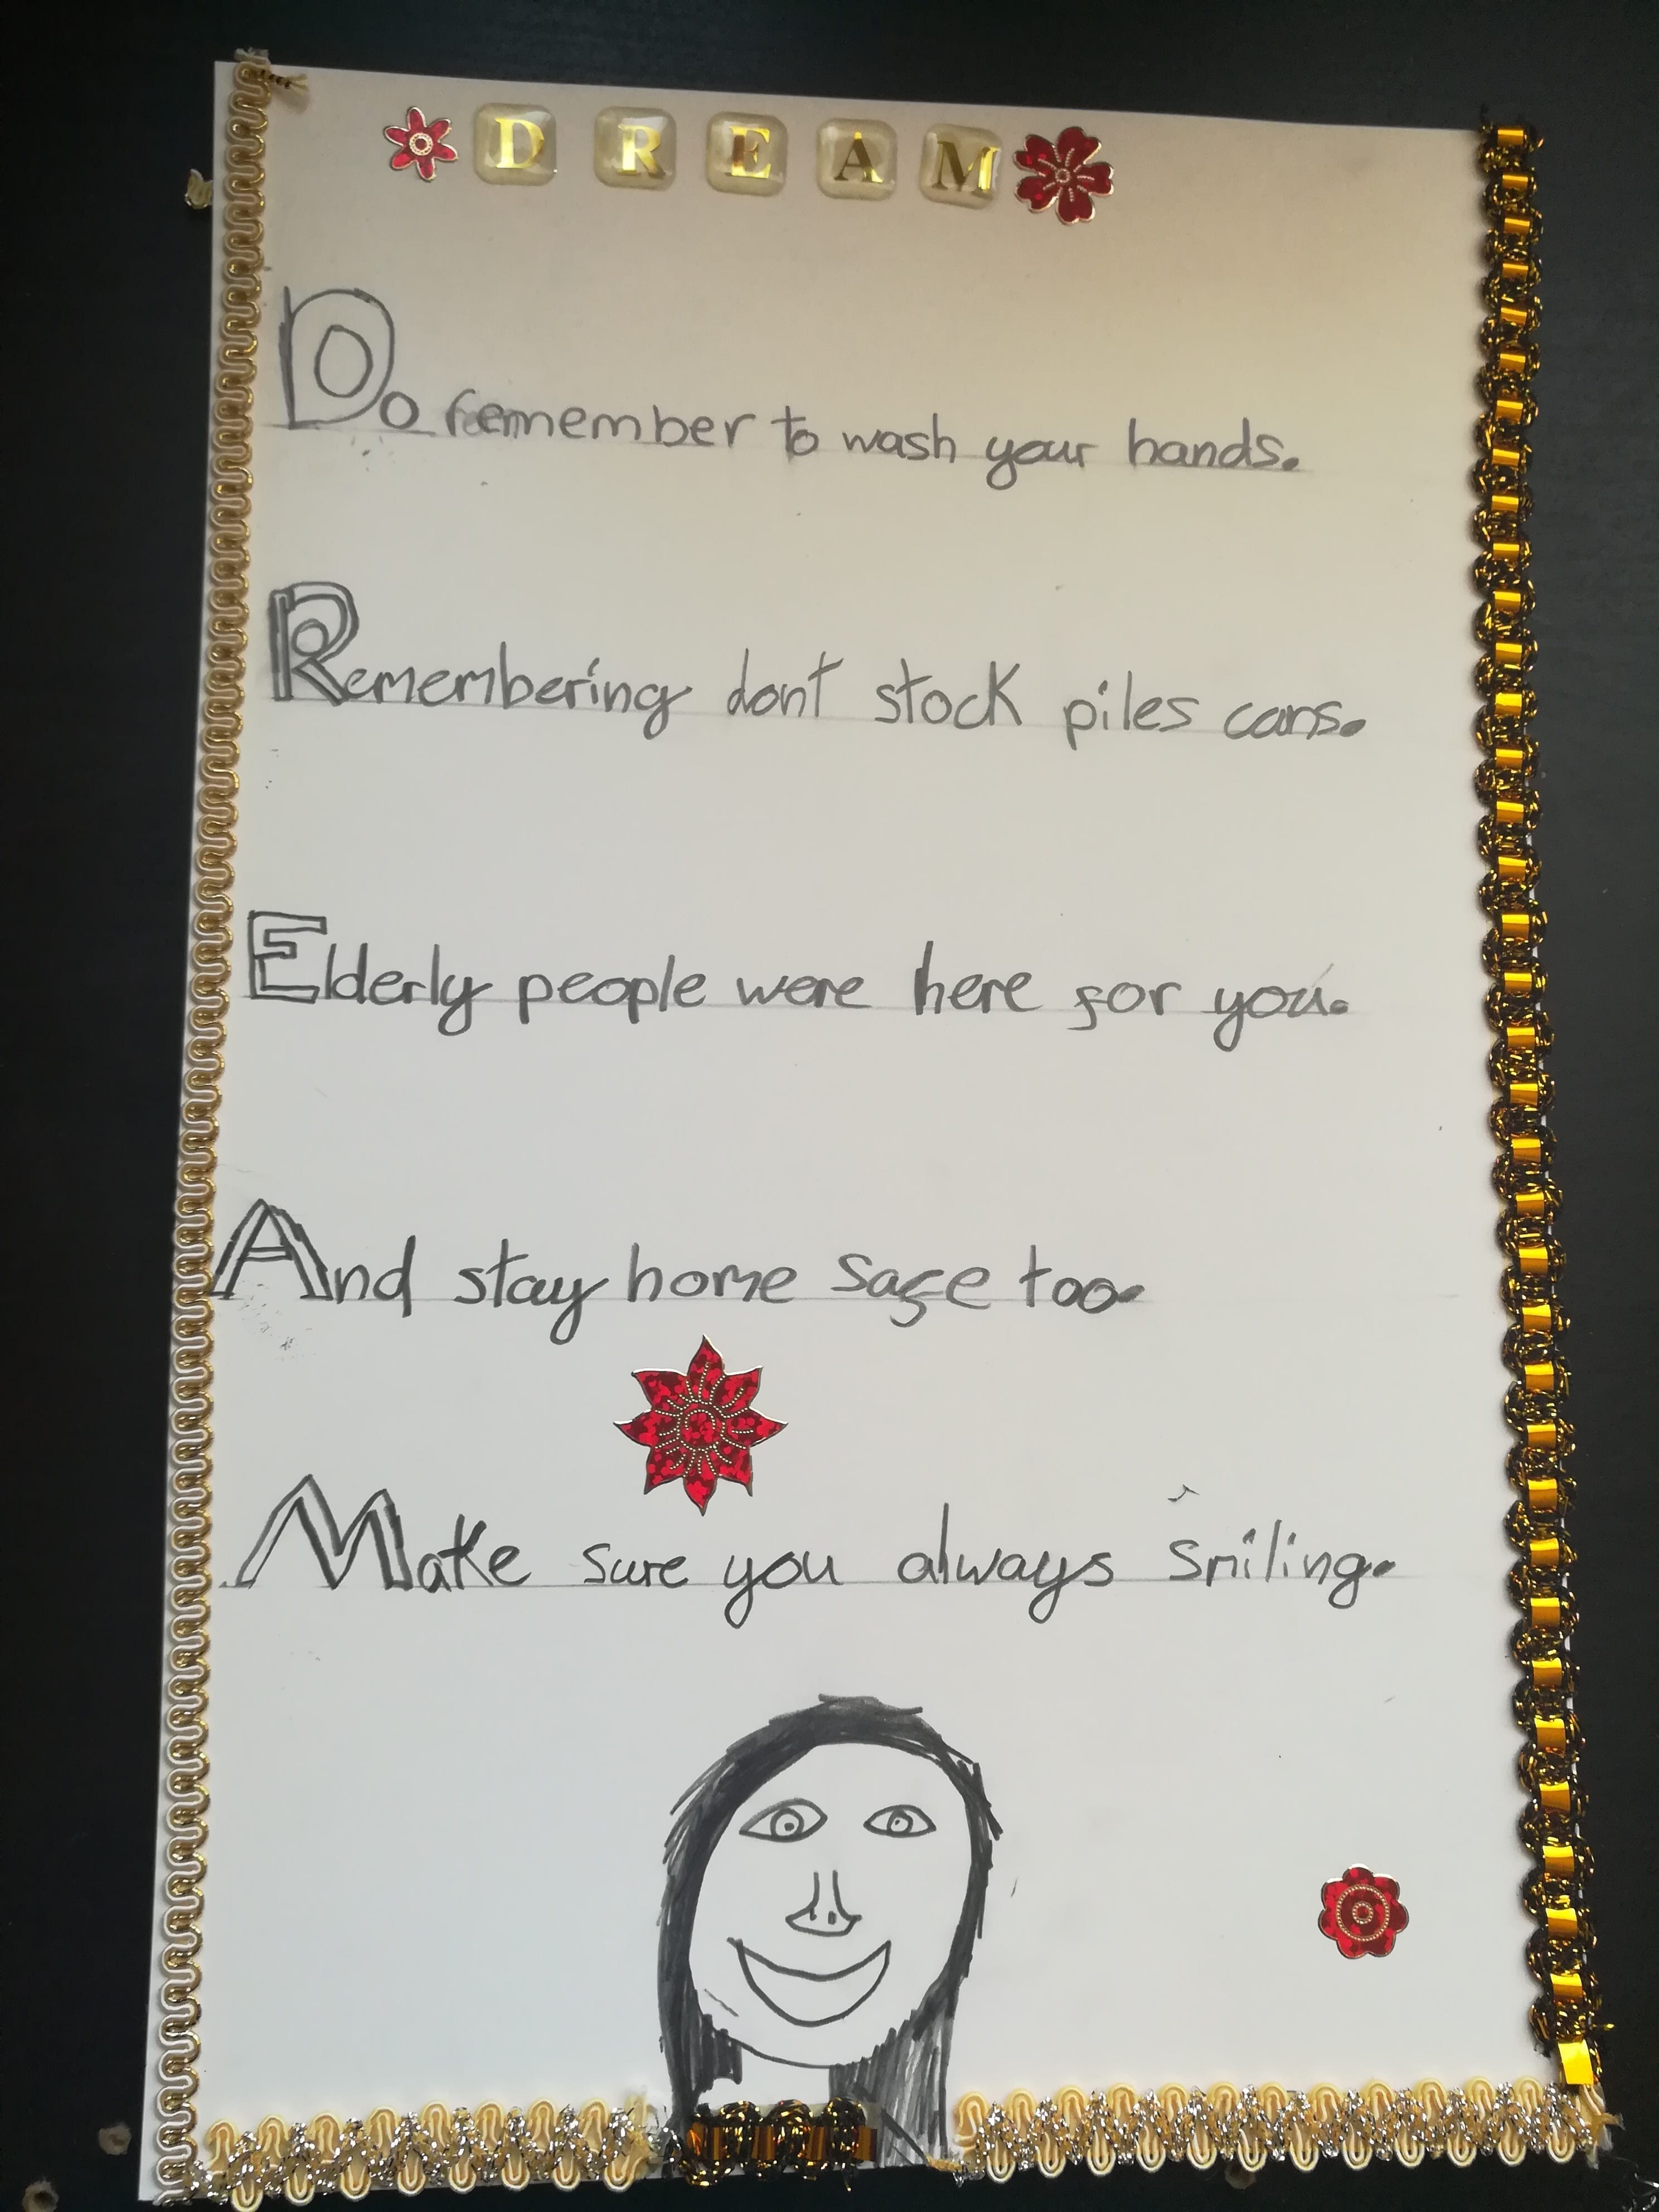 DREAM
Do remember to wash your hands.
Remembering dont stock piles cans.
Elderly people were here for you.
And stay home safe too.
Make sure you always smiling.